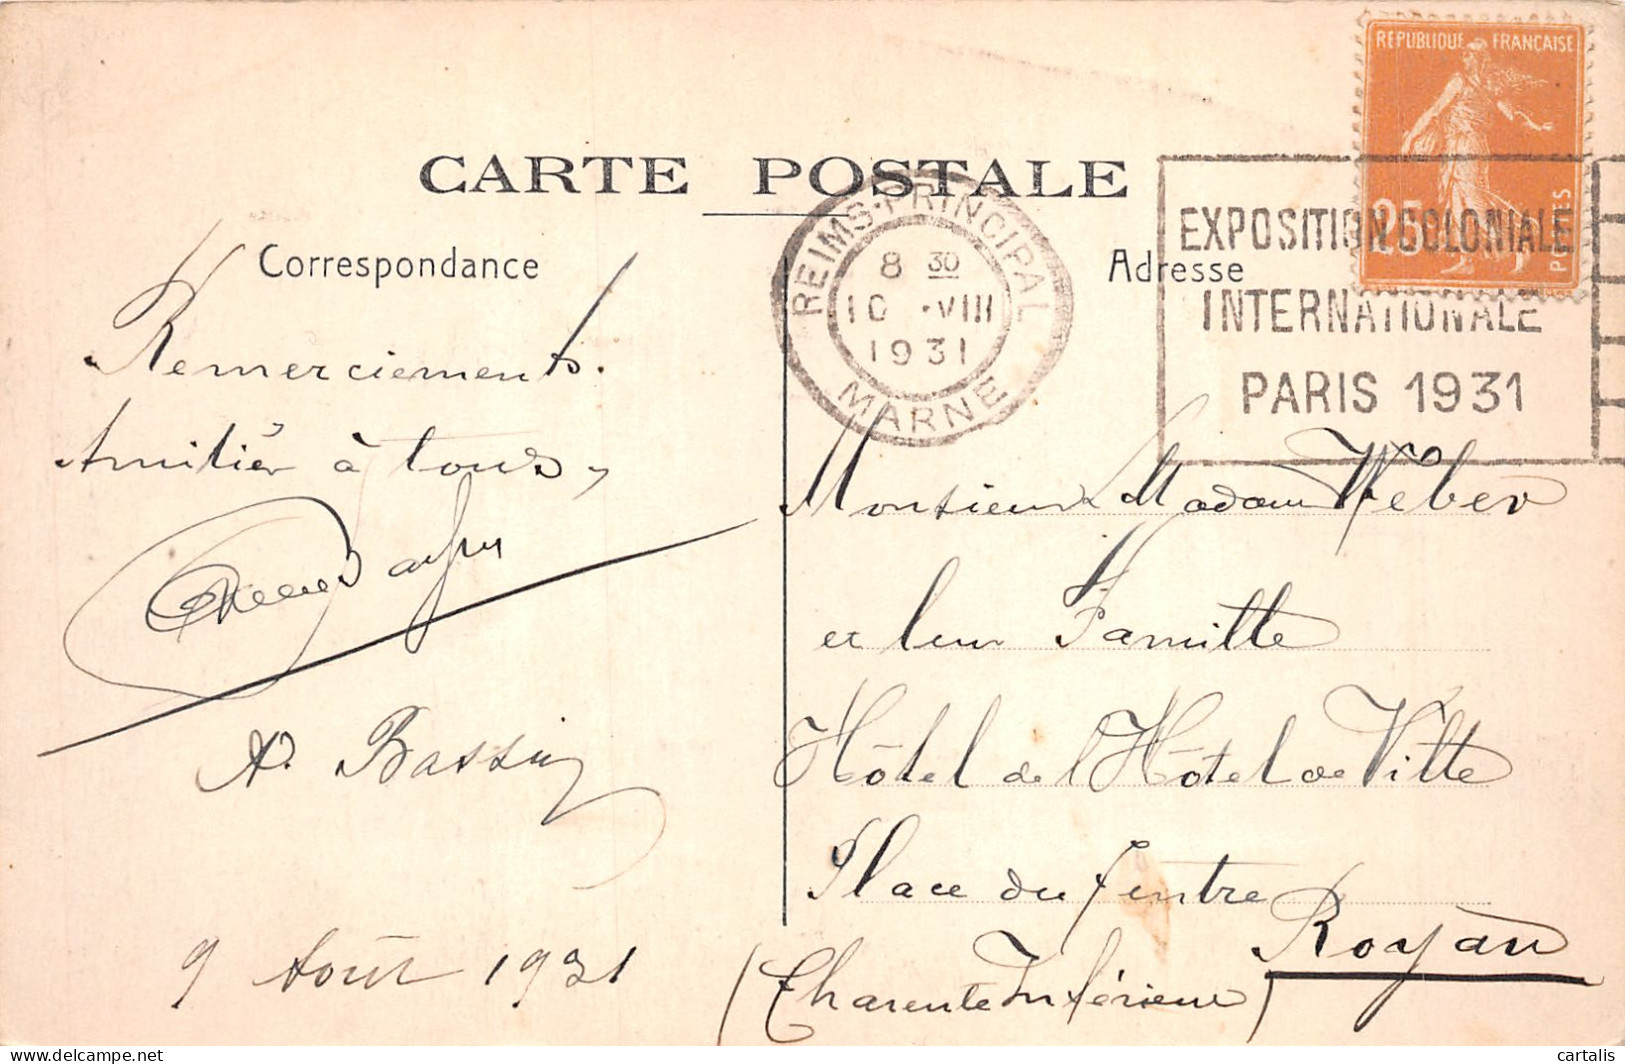 CARTE POSTALE
Correspondance
Remerciements.
Amitiés à tous,
A. Bassin
9 Août 1931
REPUBLIQUE FRANÇAISE
25
POSTES
REIMS-PRINCIPAL
8 30
10 •VIII
1931
MARNE
EXPOSITION COLONIALE
INTERNATIONALE
PARIS 1931
Adresse
Monsieur Madame Weber
et leur Famille
Hôtel de l'Hôtel de Ville
Place du Centre
Royan
(Charente Inférieure)
cartalis